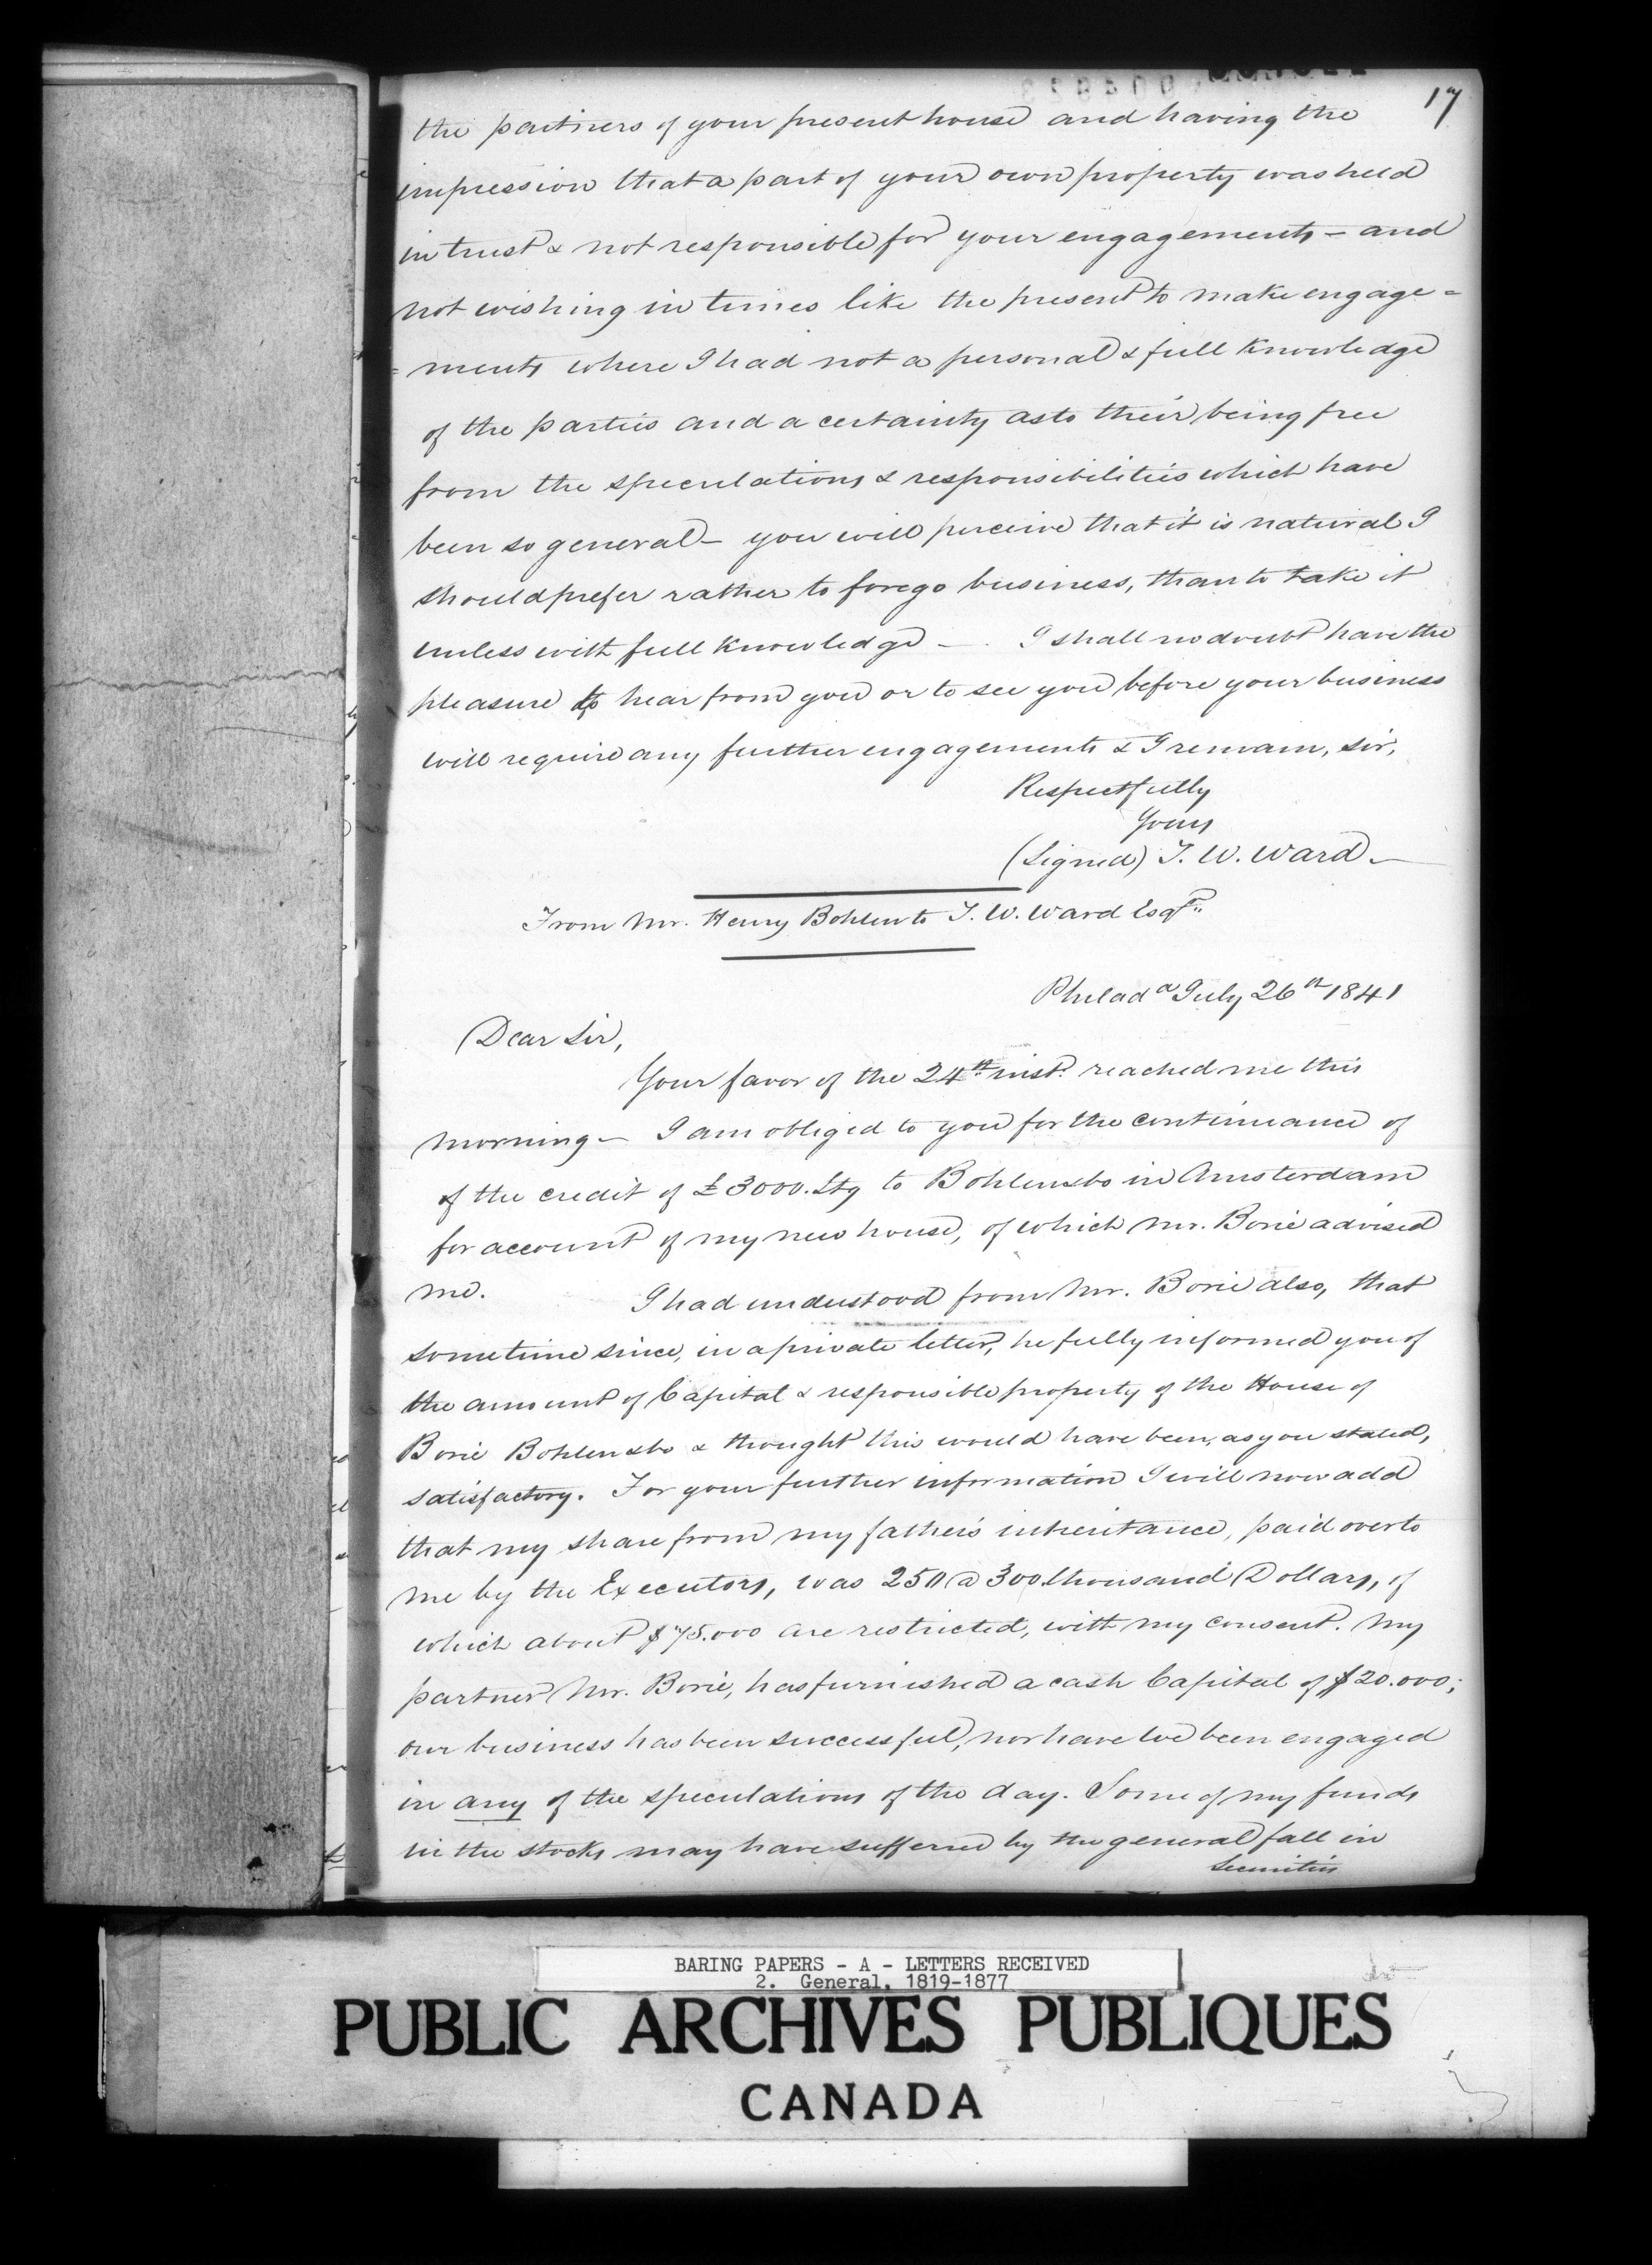 17
the partners of your present house and having the
impression that a part of your own property was held
in trust & not responsible for your engagements – and
not wishing in times like the present to make engage=
=ments where I had not a personal & full knowledge
of the parties and a certainty as to their being free
from the speculations & responsibilities which have
been so general – you will perceive that it is natural I
should prefer rather to forego business, than to take it
unless with full knowledge – . I shall no doubt have the
pleasure to hear from you or to see you before your business
will require any further engagements & I remain, sir,
Respectfully
Yours
(Signed) T. W. Ward –
From Mr. Henry Bohlen to T. W. Ward Esqre.
Philada July 26th 1841
Dear Sir,
Your favor of the 24th inst. reached me this
morning – I am obliged to you for the continuance of
of the credit of £3000. Stg to Bohlen & Co in Amsterdam
for account of my new house, of which Mr. Borie advised
me. I had understood from Mr. Borie also, that
sometime since, in a private letter, he fully informed you of
the amount of Capital & responsible property of the House of
Borie Bohlen & Co & thought this would have been, as you stated,
satisfactory. For your further information I will now add
that my share from my father's inheritance, paid over to
me by the Executors, was 250 @ 300 thousand Dollars, of
which about $75.000 are restricted, with my consent. My
partner Mr. Borie, has furnished a cash Capital of $20.000;
our business has been successful, nor have we been engaged
in any of the speculations of the day. Some of my funds
in the stocks may have suffered by the general fall in
Securities
BARING PAPERS - A - LETTERS RECEIVED
2. General, 1819-1877
PUBLIC ARCHIVES PUBLIQUES
CANADA